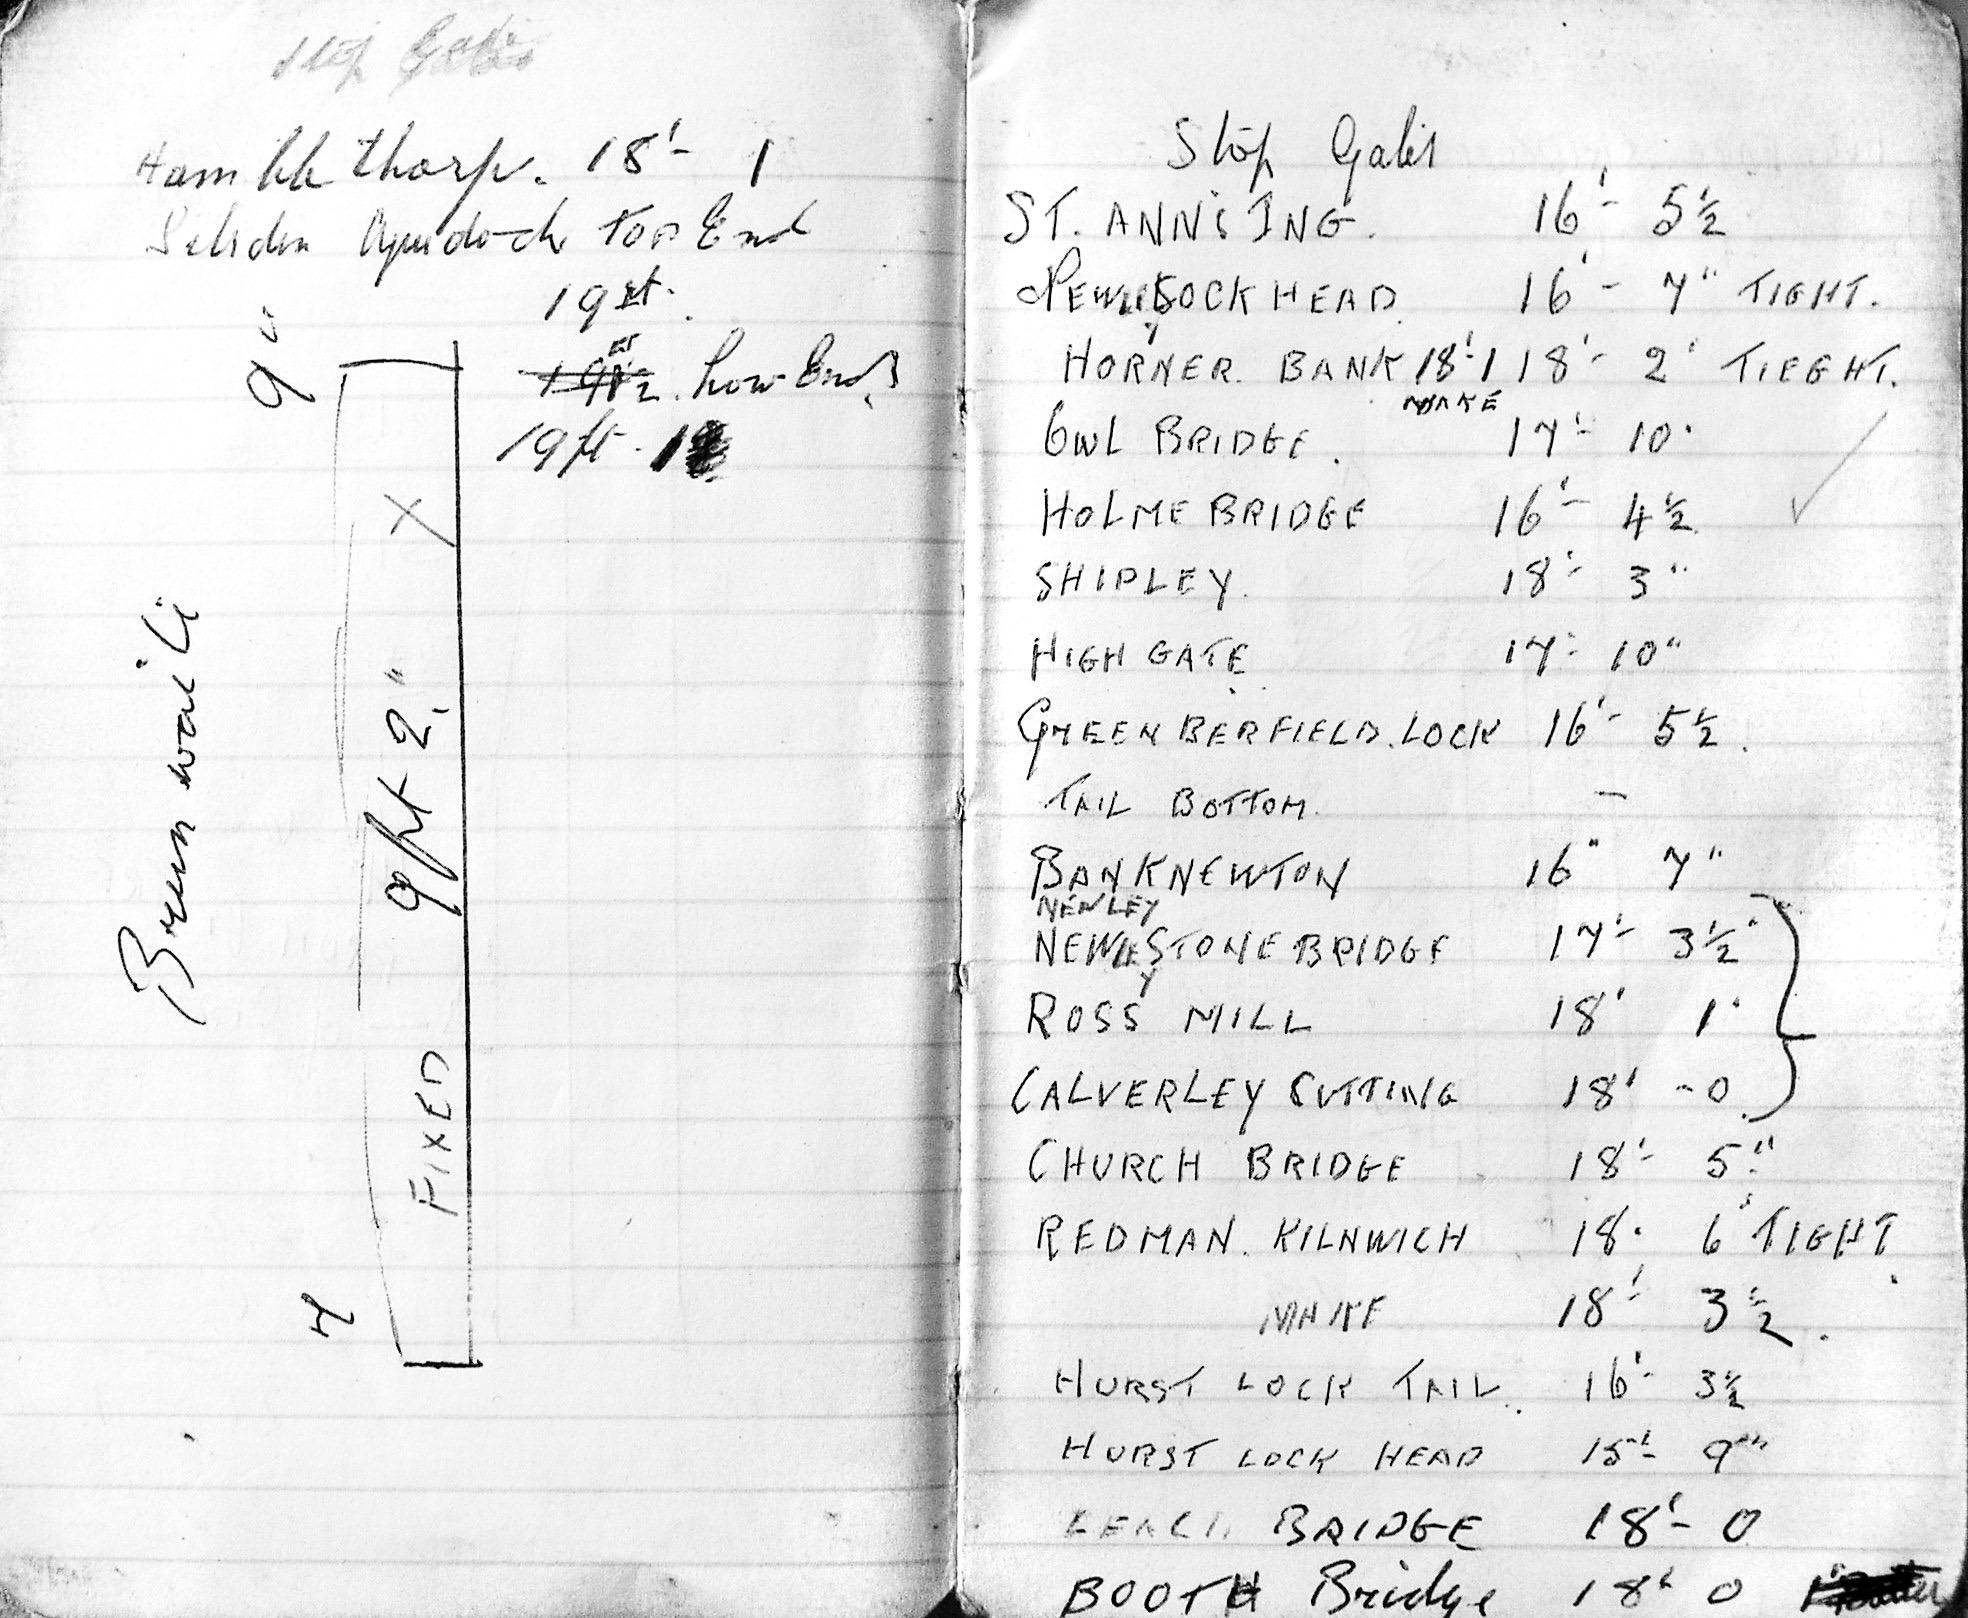 Stop Gates
Hamblethorp. 18'- 1
Silsden Aquidock Top End
19ft.
Low End
19ft. 1
9"
Brunswaite
X
9ft 2"
FIXED
4
Stop Gates
ST. ANN'S ING. 16'- 5½
NEWLEY LOCK HEAD. 16'- 7" TIGHT.
HORNER. BANK 18'-1 18'- 2' TIEGHT.
MAKE
OWL BRIDGE. 17'- 10"
HOLME BRIDGE 16'- 4½
SHIPLEY. 18'- 3"
HIGH GATE 17'- 10"
GREENBERFIELD. LOCK 16'- 5½.
TAIL BOTTOM. —
BANKNEWTON 16" 7"
NEWLEY
NEWLEY STONE BRIDGE 17'- 3½"
ROSS MILL 18' 1"
CALVERLEY CUTTING 18' -0.
CHURCH BRIDGE 18'- 5"
REDMAN. KILNWICH 18. 6" TIGHT.
MAKE 18'- 3½.
HURST LOCK TAIL. 16'- 3½
HURST LOCK HEAD 15'- 9"
LEACH BRIDGE 18'- 0
BOOTH Bridge 18' 0